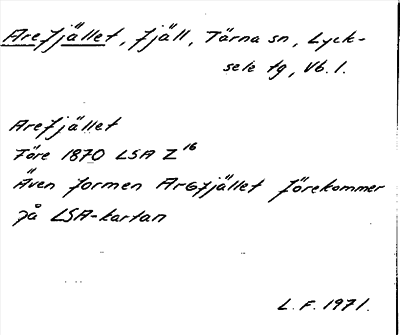 Arefjället, fjäll, Tärna sn, Lyck-
sele tg, Vb. l.
Arefjället
Före 1870 LSA Z¹⁶
Även formen Arefjället förekommer
på LSA-kartan
L. F. 1971.